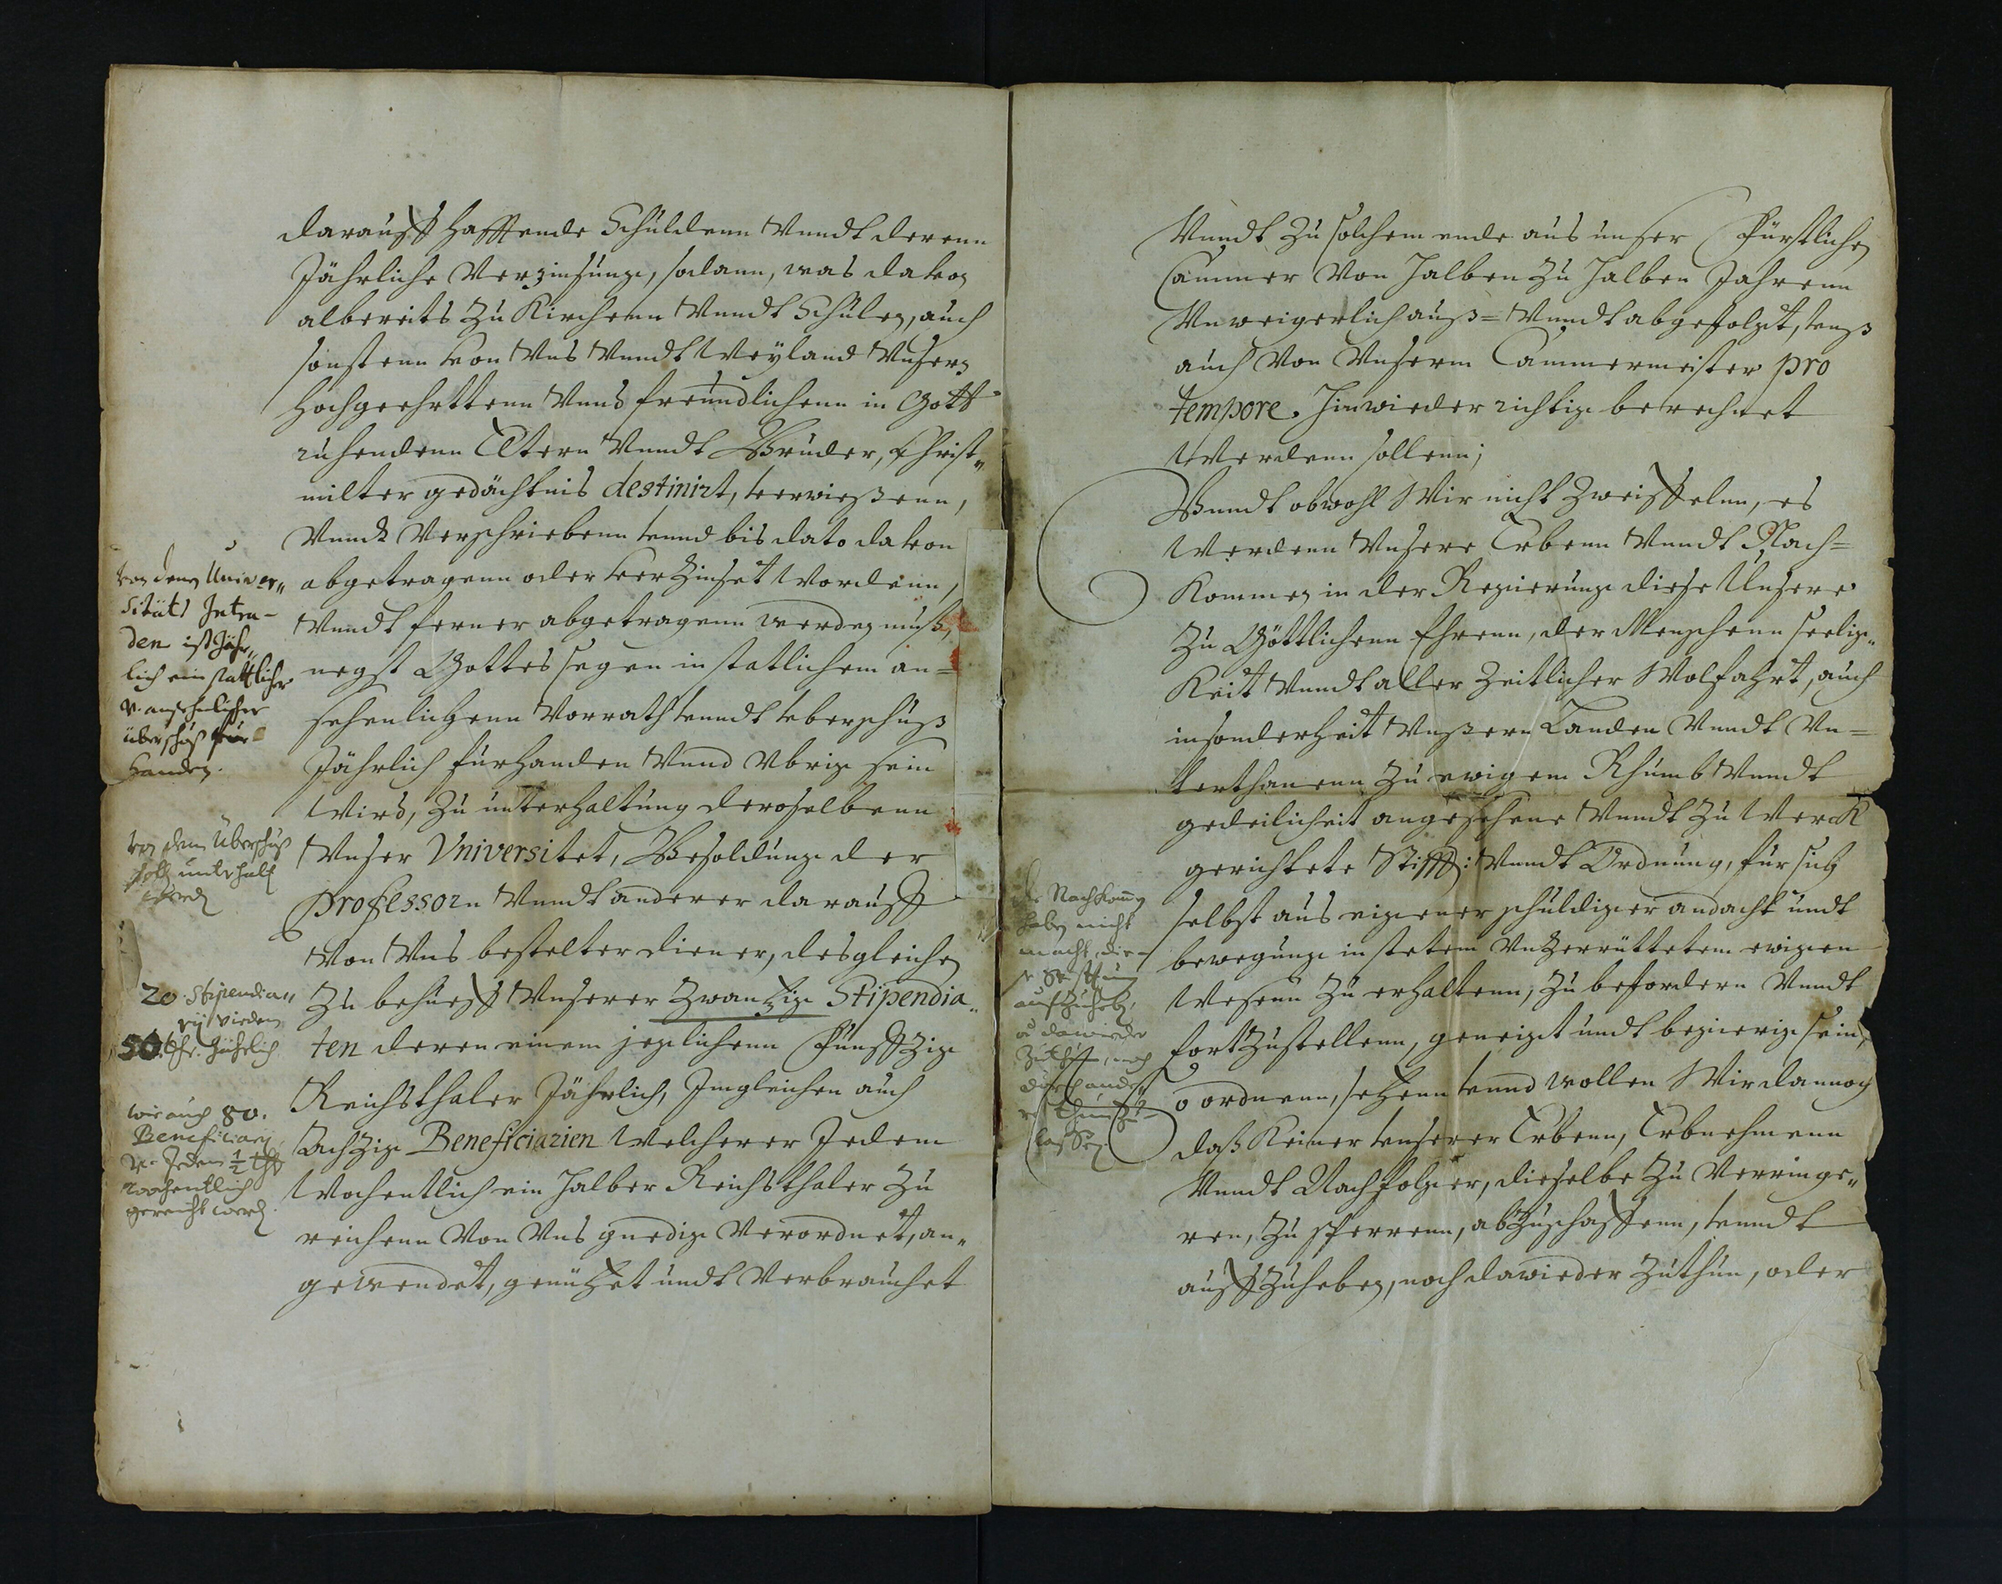 darauff hafftende Schulden vnndt derenn
Jährliche Verzinsung, sodann, was davon
albereits zu Kirchenn vnndt Schulen, auch
sonstenn von vns vnndt Weyland vnsern
hochgeehrttenn vnns freundlichenn in Gott
ruhendenn Eltern vnndt Bruder, Christ„
milter gedächtnis destinirt, verwiesenn,
vnndt verschriebenn vnnd bis dato davon
abgetragenn oder verzinset wordenn,
vnndt ferner abgetragenn werden muß,
negst Gottes segen in statlichem an=
sehenlichenn Vorrath vnndt vberschuß
Jährlich fürhanden vnnd vbrig sein
wird, zu unterhaltung deroselbenn
vnser Vniversitet, Besoldung der
Professorn vnndt anderer darauff
von vns bestelter diener, desgleichen
zu behueff vnserer zwanzig Stipendia„
ten deren einem jeglichenn Funffzig
Reichsthaler Jährlich, Imgleichen auch
Achzig Beneficiarien welcherer Jedem
wochentlich ein halber Reichsthaler zu
reichenn von vns gnedig verordnet, an„
gewendet, genützet undt verbrauchet
von denen Univer„
sitäts Intra-
den ist Jähr„
lich ein stattlicher
v. ansehelicher
überschuß für
handen.
von dem Überschuß
soll unterhalten
werden
20. Stipendia„
rij v ieden
50. thlr. Jährlich
wie auch 80.
Beneficiarij
v. Jedem ½ thlr
wochentlich
gereicht werden.
vnndt zu solchem ende aus unser Fürstlichen
Cammer von halben zu halben Jahrenn
vnweigerlich auß= vnndt abgefolgt, vnß
auch von vnserm Cammermeister pro
tempore. hinwieder richtig berechnet
werdenn sollenn;
Vnndt obwohl Wir nicht zweiffelnn, es
werdenn vnsere Erbenn vnndt Nach=
kommen in der Regierung diese Unsere
zu Göttlichenn Ehrenn, der Menschenn seelig„
keit vnndt aller zeitlicher Wolfahrt, auch
insonderheit vnßern Landen vnndt Vn=
terthanenn zu ewigem Rhumb vnndt
gedeilicheit angesehene vnndt zu werck
gerichtete Stifft: vnndt Ordnung, für sich
selbst aus eigener schuldiger andacht undt
bewegung in stetem vnzerrüttetem ewigen
Wesenn zu erhaltenn, zu befordern vnndt
fortzustellenn, geneigt undt begierig sein,
So ordnenn, setzenn vnnd wollen Wir dannoch
daß Keiner vnserer Erbenn, Erbnehmenn
vnndt Nachfolger, dieselbe zu verringe„
ren, zu sperrenn, abzuschaffenn, vnndt
auffzuheben, noch dawieder zuthun, oder
die Nachkomen
haben nicht
macht, die-
se Stifftung
aufzuheben,
od dawieder
zuthun, noch
durch ande„
re thun zu
lassen